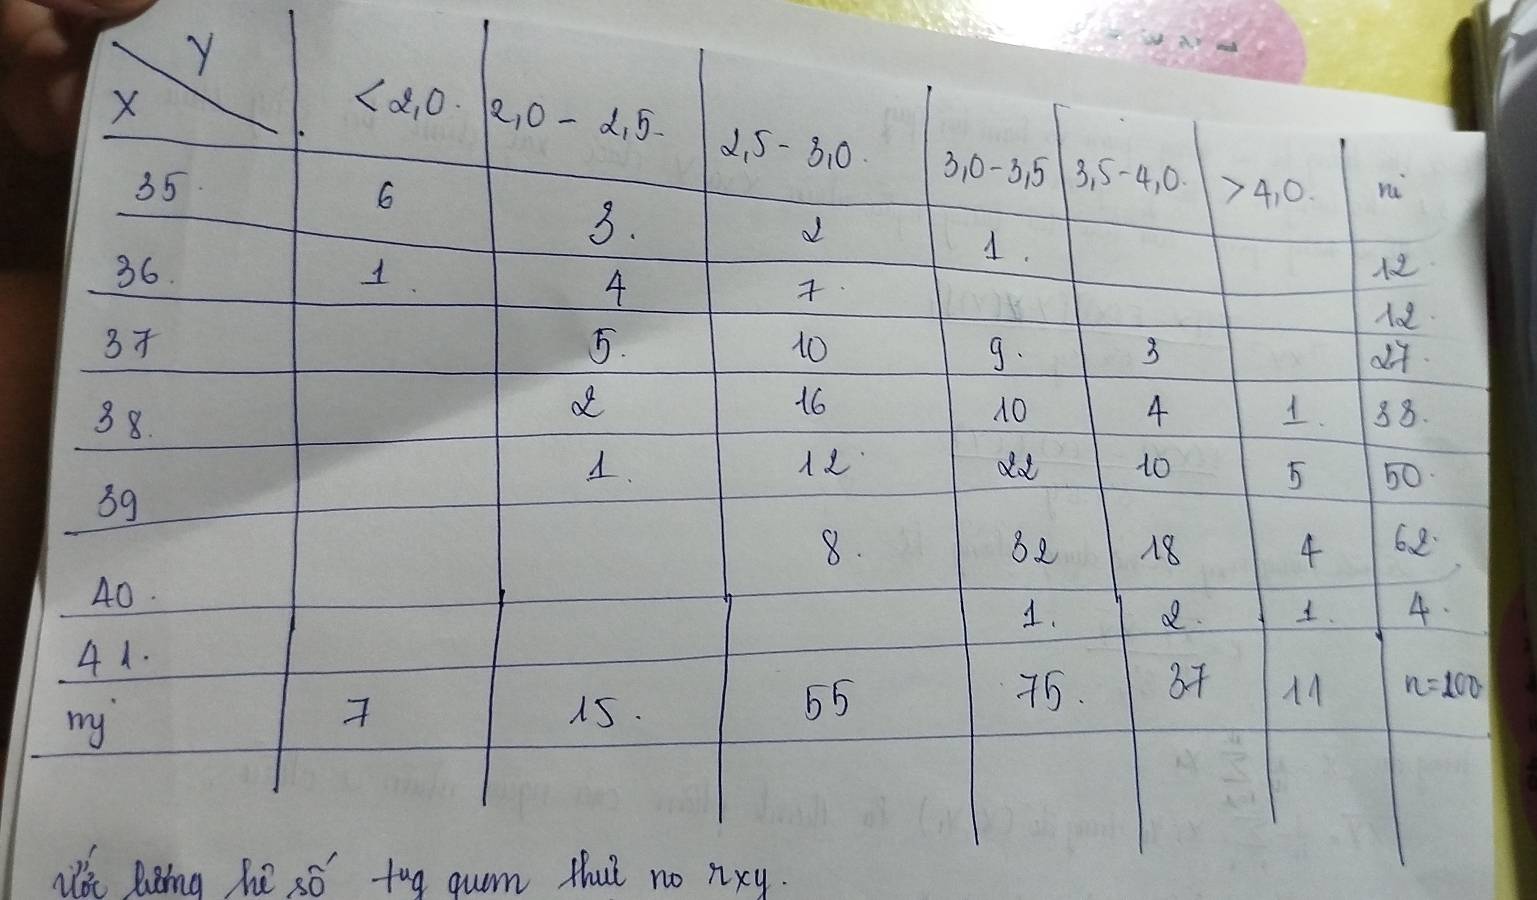 Y
X < 2,0. 2,0 - 2,5- 2,5 - 3,0. 3,0-3,5 3,5-4,0. > 4,0. ni
35. 6 3. 2 1. 12
36. 1. 4 7. 12.
37 5. 10 9. 3 27.
38. 2 16 10 4 1. 33.
39 1. 12 22 10 5 50.
40. 8. 32 18 4 62.
41. 1. 2. 1. 4.
mj 7 15. 55 75. 37 11 n=200
Ước lượng hệ số quan rxy.